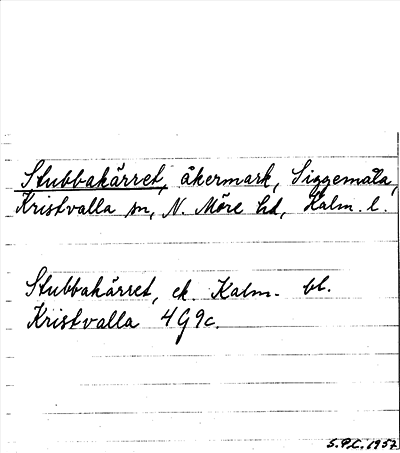 Stubbakärret, åkermark, Siggemåla,
Kristvalla sn, N. Möre hd, Kalm. l.
Stubbakärret, ek. Kalm. bl.
Kristvalla 4G9c.
S.P.C. 1957